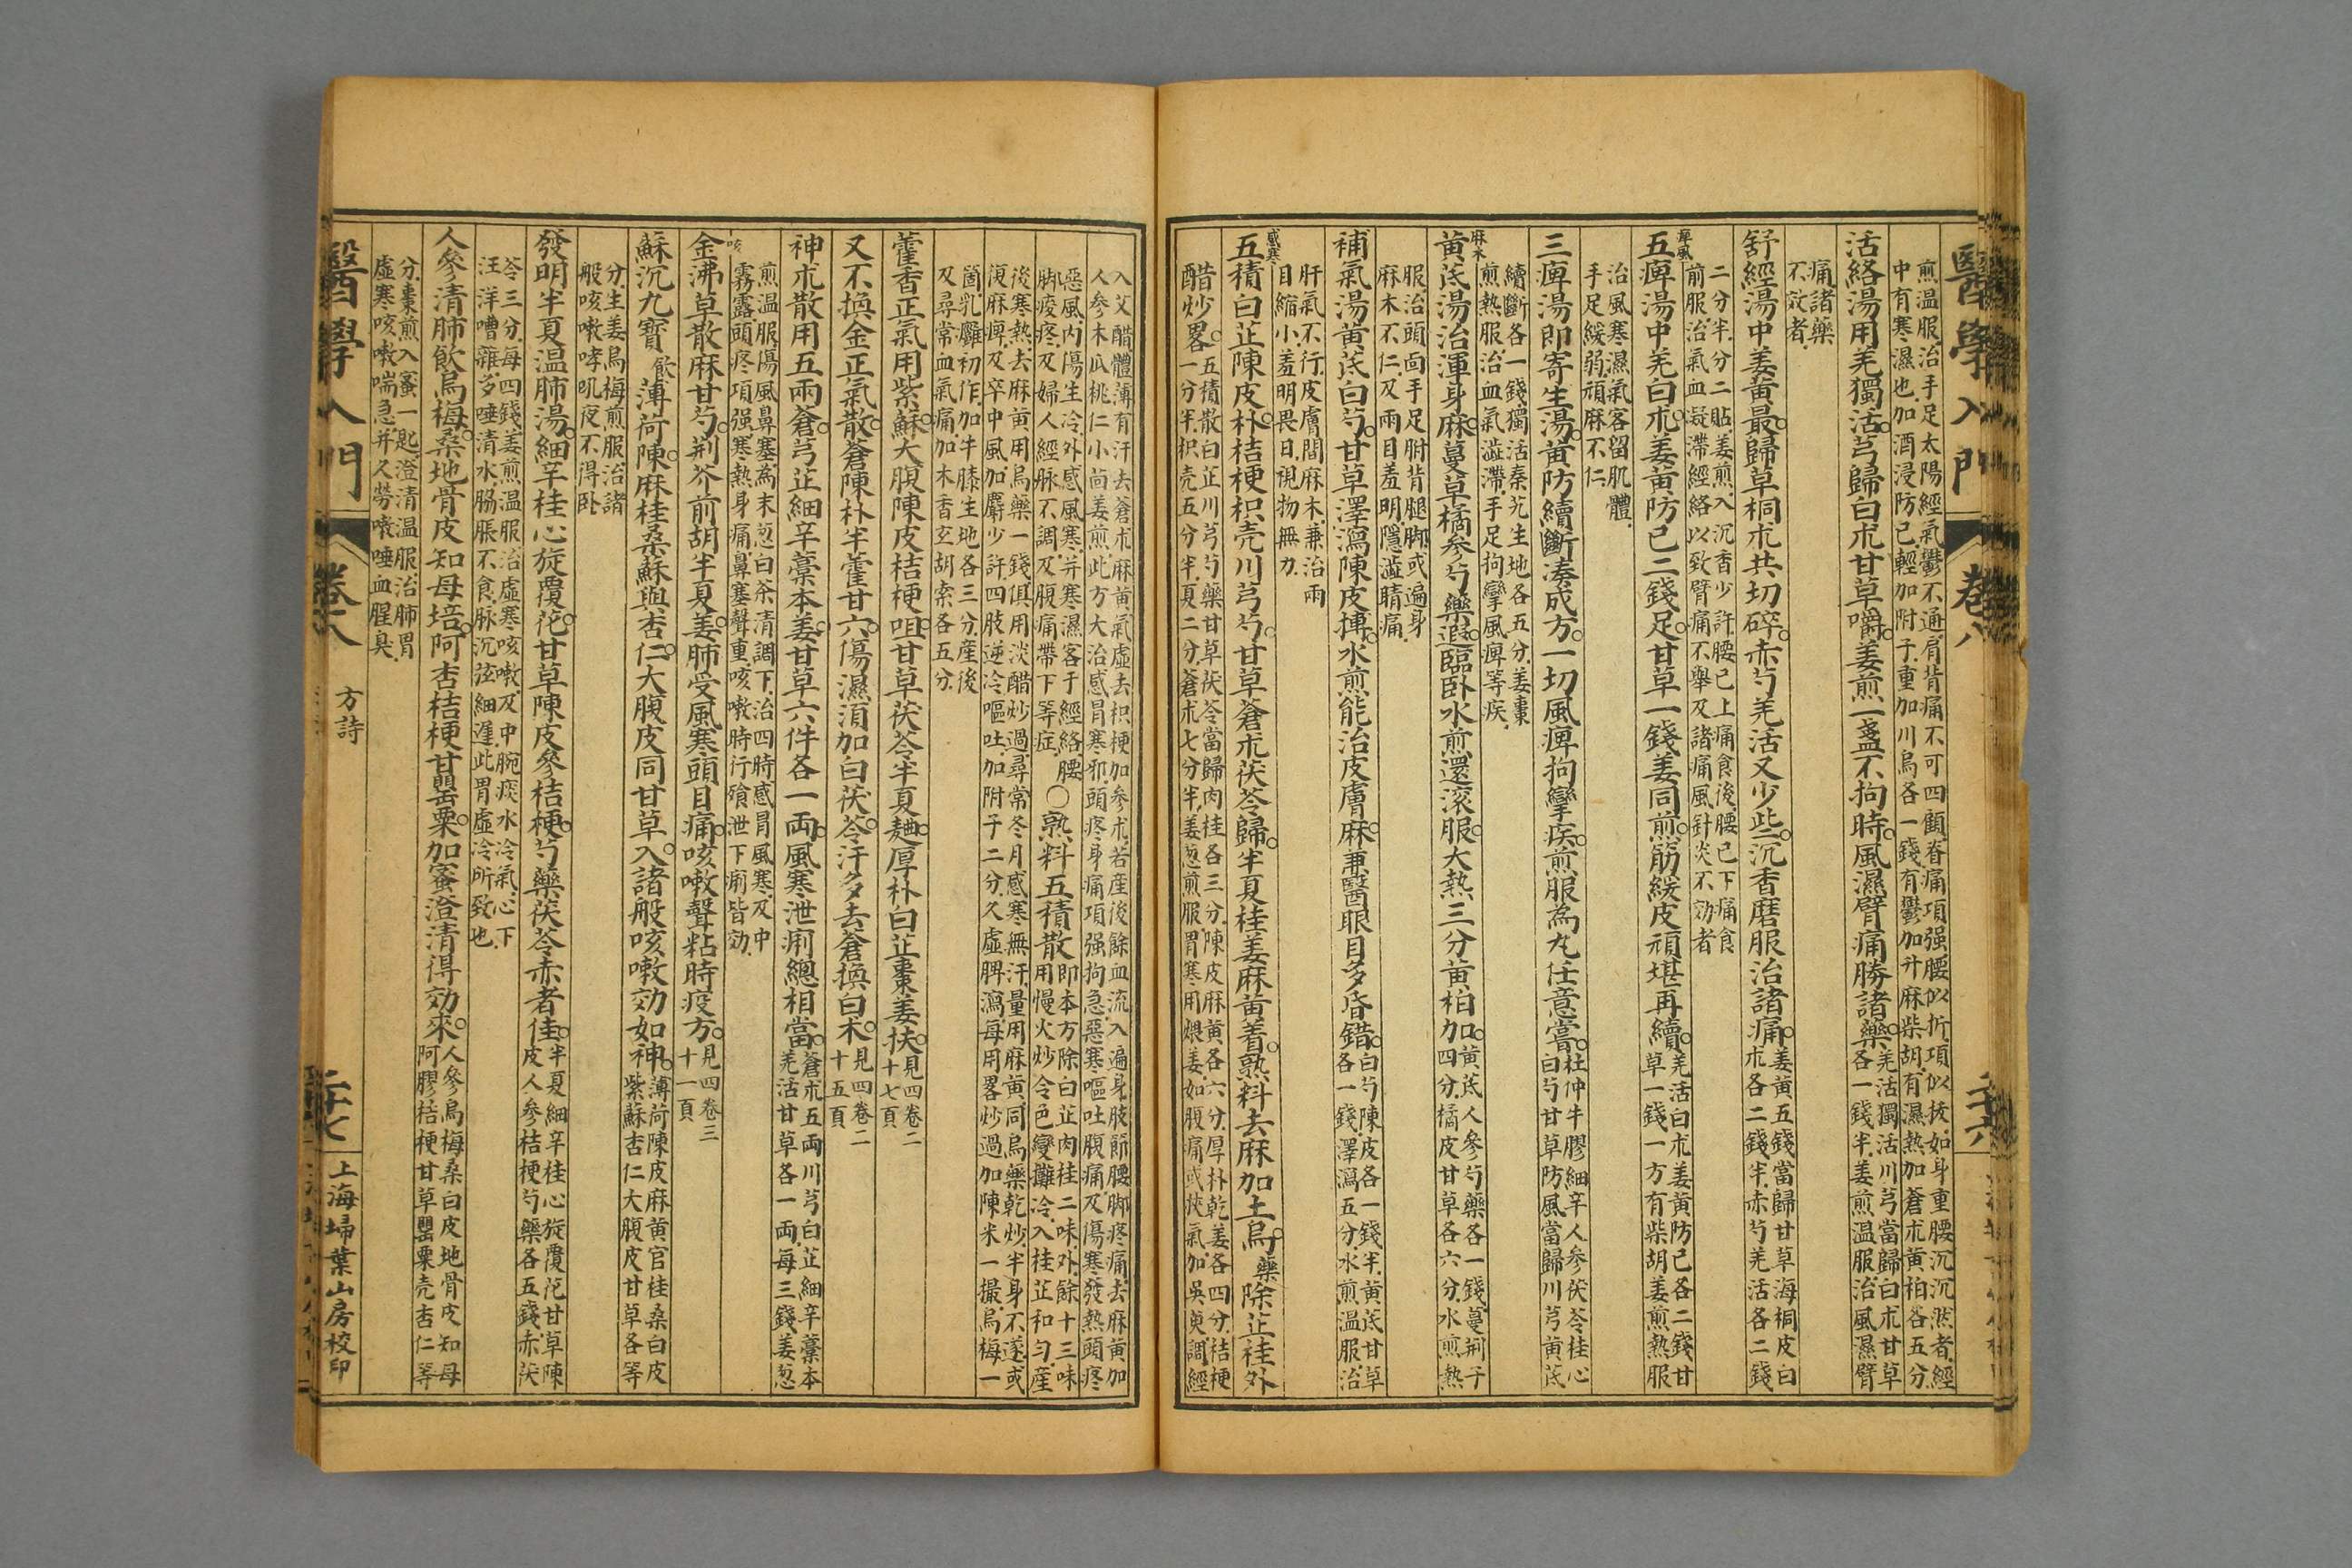 醫學入門
卷八
二十六
煎温服治手足太陽經氣鬱不通肩背痛不可四顧脊痛項强腰似折項似拔如身重腰沉沉然者經
中有寒濕也加酒浸防己輕加附子重加川烏各一錢有鬱加升麻柴胡有濕熱加蒼朮黄柏各五分
活絡湯用羌獨活芎歸白朮甘草嚼姜煎一盞不拘時風濕臂痛勝諸藥
羌活獨活川芎當歸白朮甘草
各一錢半姜煎温服治風濕臂
痛諸藥
不效者
舒經湯中姜黄最歸草桐朮共切碎赤芍羌活又少些沉香磨服治諸痛
姜黄五錢當歸甘草海桐皮白
朮各二錢半赤芍羌活各二錢
二分半分二貼姜煎入沉香少許腰已上痛食後腰已下痛食
前服治氣血凝滯經絡以致臂痛不舉及諸痛風針灸不効者
痺風
五痺湯中羌白朮姜黄防己二錢足甘草一錢姜同煎筋緩皮頑堪再續
羌活白朮姜黄防己各二錢甘
草一錢一方有柴胡姜煎熱服
治風寒濕氣客留肌體
手足緩弱頑麻不仁
三痺湯即寄生湯黄防續斷湊成方一切風痺拘攣疾煎服為丸任意嘗
杜仲牛膠細辛人參茯苓桂心
白芍甘草防風當歸川芎黄芪
續斷各一錢獨活秦艽生地各五分姜棗
煎熱服治血氣澁滯手足拘攣風痺等疾
麻木
黄芪湯治渾身麻蔓草橘參芍藥遐臨卧水煎還滚服大熱三分黄柏加
黄芪人參芍藥各一錢蔓荆子
四分橘皮甘草各六分水煎熱
服治頭面手足肘背腿脚或遍身
麻木不仁及兩目羞明隱澁睛痛
補氣湯黄芪白芍甘草澤瀉陳皮摶水煎能治皮膚麻兼醫眼目多昏錯
白芍陳皮各一錢半黄芪甘草
各一錢澤瀉五分水煎温服治
肝氣不行皮膚間麻木兼治兩
目縮小羞明畏日視物無力
感寒
五積白芷陳皮朴桔梗枳壳川芎芍甘草蒼朮茯苓歸半夏桂姜麻黄着熟料去麻加土烏藥除芷桂外
醋炒畧
五積散白芷川芎芍藥甘草茯苓當歸肉桂各三分陳皮麻黄各六分厚朴乾姜各四分桔梗
一分半枳壳五分半夏二分蒼朮七分半姜葱煎服胃寒用煨姜如腹痛或挾氣加吳萸調經
入艾醋體薄有汗去蒼朮麻黄氣虛去枳梗加參朮若産後餘血流入遍身肢節腰脚疼痛去麻黄加
人參木瓜桃仁小茴姜煎此方大治感冒寒邪頭疼身痛項强拘急惡寒嘔吐腹痛及傷寒發熱頭疼
惡風内傷生冷外感風寒并寒濕客于經絡腰〇熟料五積散即本方除白芷肉桂二味外餘十三味
脚痠疼及婦人經脉不調及腹痛帶下等症　用慢火炒令色變攤冷入桂芷和勻産
後寒熱去麻黄用烏藥一錢俱用淡醋炒過尋常冬月感寒無汗量用麻黄同烏藥乾炒半身不遂或
復麻痺及卒中風加麝少許四肢逆冷嘔吐加附子二分久虛脾瀉每用畧炒過加陳米一撮烏梅一
箇乳癰初作加牛膝生地各三分産後
及尋常血氣痛加木香玄胡索各五分
藿香正氣用紫蘇大腹陳皮桔梗咀甘草茯苓半夏麯厚朴白芷棗姜扶
見四卷二
十七頁
又不換金正氣散蒼陳朴半藿甘六傷濕須加白茯苓汗多去蒼換白朮
見四卷二
十五頁
神朮散用五兩蒼芎芷細辛藁本姜甘草六件各一兩風寒泄痢總相當
蒼朮五兩川芎白芷細辛藁本
羌活甘草各一兩每三錢姜葱
煎温服傷風鼻塞為末葱白茶清調下治四時感冒風寒及中
霧露頭疼項强寒熱身痛鼻塞聲重咳嗽時行飱泄下痢皆効
咳
金沸草散麻甘芍荆芥前胡半夏姜肺受風寒頭目痛咳嗽聲粘時疫方
見四卷三
十一頁
蘇沉九寶飲薄荷陳麻桂桑蘇與杏仁大腹皮同甘草入諸般咳嗽効如神
薄荷陳皮麻黄官桂桑白皮
紫蘇杏仁大腹皮甘草各等
分生姜烏梅煎服治諸
般咳嗽哮吼夜不得卧
發明半夏温肺湯細辛桂心旋覆花甘草陳皮參桔梗芍藥茯苓赤者佳
半夏細辛桂心旋覆花甘草陳
皮人參桔梗芍藥各五錢赤茯
苓三分每四錢姜煎温服治虛寒咳嗽及中腕痰水冷氣心下
汪洋嘈雜多唾清水腸脹不食脉沉弦細遲此胃虛冷所致也
人參清肺飲烏梅桑地骨皮知母培阿杏桔梗甘罌粟加蜜澄清得効來
人參烏梅桑白皮地骨皮知母
阿膠桔梗甘草罌粟壳杏仁等
分棗煎入蜜一匙澄清温服治肺胃
虛寒咳嗽喘急并久勞嗽唾血腥臭
醫學入門
卷八
方詩
二十七
上海埽葉山房校印